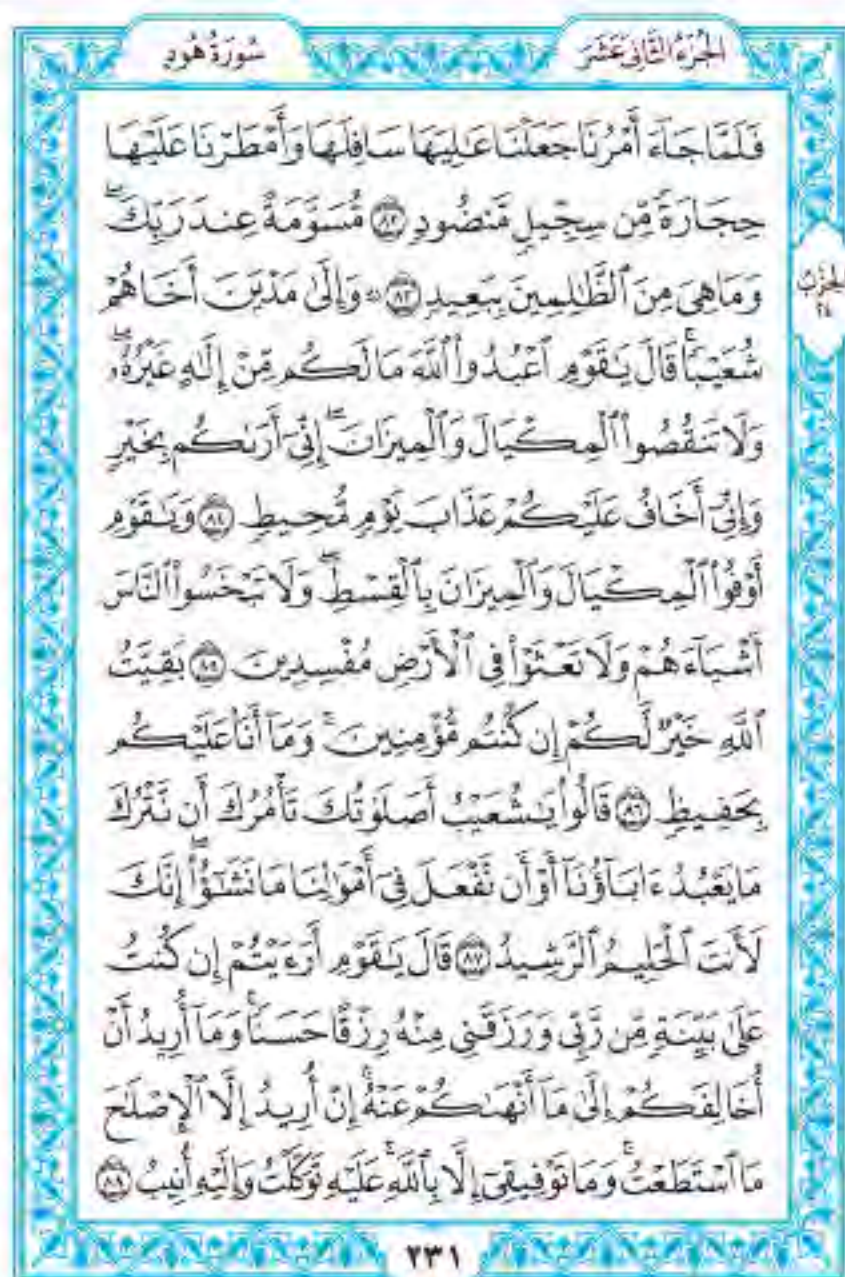 الجُزْءُ الثَّانِي عَشَرَ
سُورَةُ هُودٍ
فَلَمَّا جَآءَ أَمْرُنَا جَعَلْنَا عَٰلِيَهَا سَافِلَهَا وَأَمْطَرْنَا عَلَيْهَا
حِجَارَةً مِّن سِجِّيلٍ مَّنضُودٍ ﴿٨٢﴾ مُّسَوَّمَةً عِندَ رَبِّكَۖ
وَمَا هِيَ مِنَ ٱلظَّٰلِمِينَ بِبَعِيدٍ ﴿٨٣﴾ ۞ وَإِلَىٰ مَدْيَنَ أَخَاهُمْ
شُعَيْبًاۚ قَالَ يَٰقَوْمِ ٱعْبُدُوا۟ ٱللَّهَ مَا لَكُم مِّنْ إِلَٰهٍ غَيْرُهُۥۖ
وَلَا تَنقُصُوا۟ ٱلْمِكْيَالَ وَٱلْمِيزَانَۖ إِنِّىٓ أَرَىٰكُم بِخَيْرٍ
وَإِنِّىٓ أَخَافُ عَلَيْكُمْ عَذَابَ يَوْمٍ مُّحِيطٍ ﴿٨٤﴾ وَيَٰقَوْمِ
أَوْفُوا۟ ٱلْمِكْيَالَ وَٱلْمِيزَانَ بِٱلْقِسْطِۖ وَلَا تَبْخَسُوا۟ ٱلنَّاسَ
أَشْيَآءَهُمْ وَلَا تَعْثَوْا۟ فِى ٱلْأَرْضِ مُفْسِدِينَ ﴿٨٥﴾ بَقِيَّتُ
ٱللَّهِ خَيْرٌ لَّكُمْ إِن كُنتُم مُّؤْمِنِينَۚ وَمَآ أَنَا۠ عَلَيْكُم
بِحَفِيظٍ ﴿٨٦﴾ قَالُوا۟ يَٰشُعَيْبُ أَصَلَوٰتُكَ تَأْمُرُكَ أَن نَّتْرُكَ
مَا يَعْبُدُ ءَابَآؤُنَآ أَوْ أَن نَّفْعَلَ فِىٓ أَمْوَٰلِنَا مَا نَشَٰٓؤُا۟ۖ إِنَّكَ
لَأَنتَ ٱلْحَلِيمُ ٱلرَّشِيدُ ﴿٨٧﴾ قَالَ يَٰقَوْمِ أَرَءَيْتُمْ إِن كُنتُ
عَلَىٰ بَيِّنَةٍ مِّن رَّبِّى وَرَزَقَنِى مِنْهُ رِزْقًا حَسَنًاۚ وَمَآ أُرِيدُ أَنْ
أُخَالِفَكُمْ إِلَىٰ مَآ أَنْهَىٰكُمْ عَنْهُۚ إِنْ أُرِيدُ إِلَّا ٱلْإِصْلَٰحَ
مَا ٱسْتَطَعْتُۚ وَمَا تَوْفِيقِىٓ إِلَّا بِٱللَّهِۚ عَلَيْهِ تَوَكَّلْتُ وَإِلَيْهِ أُنِيبُ ﴿٨٨﴾
الحِزْبُ
٢٤
٢٣١